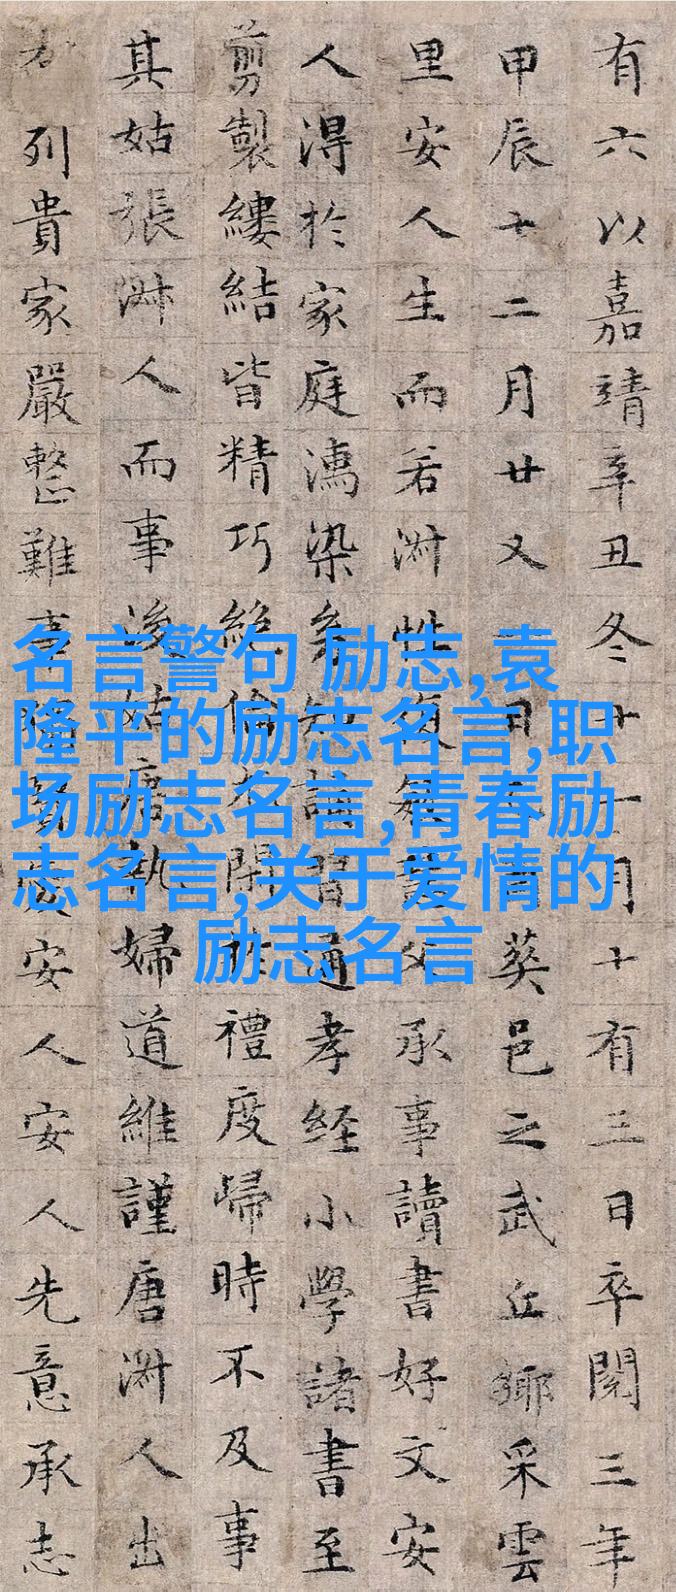 有六以嘉靖辛丑冬十一月十有三日卒閱三年
甲辰十二月廿又甲葬邑之武丘鄉采雲
里安人生而若淑性父承事讀書好文安
人淂於家庭濡染知習通孝経小學諸書至
剪製縷結皆精巧絕倫閑於禮度歸時不及事
其姑張淑人而事後姑唐執婦道維謹唐淑人出
列貴家嚴整難事安人安人先意承志
名言警句 励志,袁
隆平的励志名言,职
场励志名言,青春励
志名言,关于爱情的
励志名言